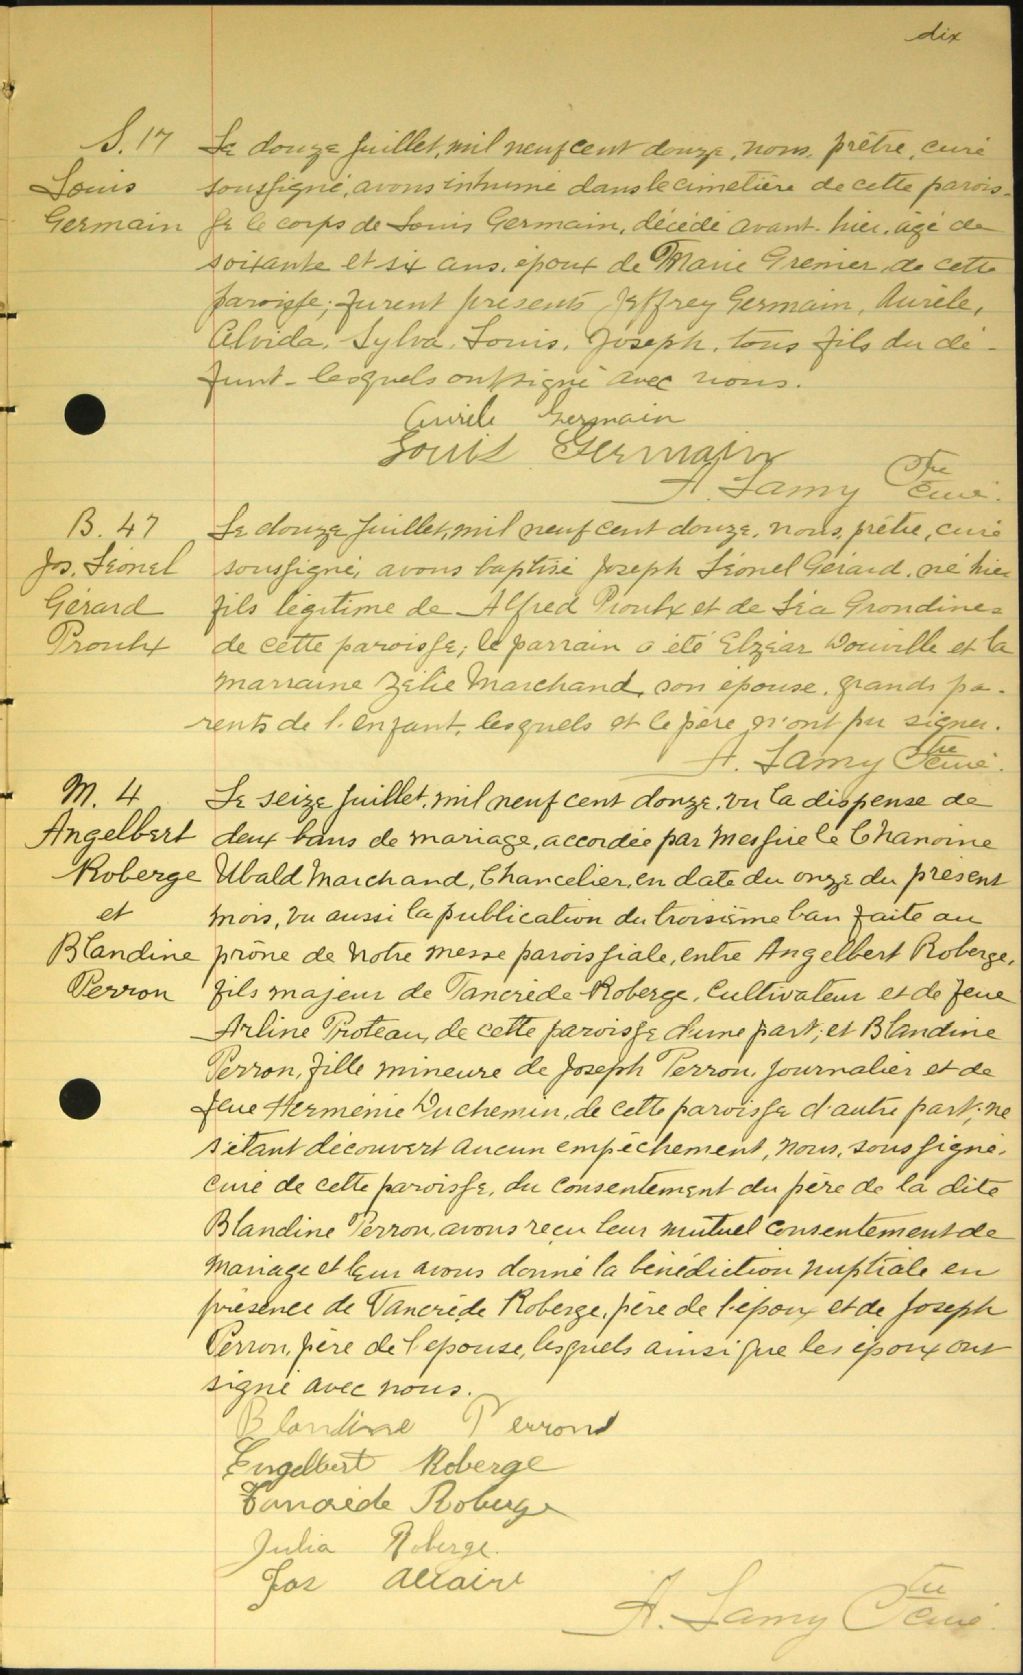 dix
S. 17
Louis
Germain
Le douze juillet, mil neuf cent douze, nous, prêtre, curé
soussigné, avons inhumé dans le cimetière de cette parois-
se le corps de Louis Germain, décédé avant-hier, âgé de
soixante et six ans, époux de Marie Grenier de cette
paroisse; furent présents Jeffrey Germain, Aurèle,
Alvida, Sylva, Louis, Joseph, tous fils du dé-
funt - lesquels ont signé avec nous.
Aurèle Germain
Louis Germain
A. Lamy Ptre
Curé.
B. 47
Jos. Léonel
Gérard
Proulx
Le douze juillet, mil neuf cent douze, nous, prêtre, curé
soussigné, avons baptisé Joseph Léonel Gérard, né hier
fils légitime de Alfred Proulx et de Léa Grondines
de cette paroisse; le parrain a été Elzéar Douville et la
marraine Zélie Marchand, son épouse, grands pa-
rents de l'enfant, lesquels et le père n'ont pu signer.
A. Lamy Ptre
curé.
M. 4
Angelbert
Roberge
et
Blandine
Perron
Le seize juillet, mil neuf cent douze, vu la dispense de
deux bans de mariage, accordée par Messire le Chanoine
Ubald Marchand, Chancelier, en date du onze du présent
mois, vu aussi la publication du troisième ban faite au
prône de notre messe paroissiale, entre Angelbert Roberge,
fils majeur de Tancrède Roberge, Cultivateur et de feue
Arline Proteau, de cette paroisse d'une part; et Blandine
Perron, fille mineure de Joseph Perron, journalier et de
feue Herménie Duchemin, de cette paroisse d'autre part; ne
s'étant découvert aucun empêchement, nous, soussigné,
curé de cette paroisse, du consentement du père de la dite
Blandine Perron, avons reçu leur mutuel consentement de
mariage et leur avons donné la bénédiction nuptiale en
présence de Tancrède Roberge, père de l'époux et de Joseph
Perron, père de l'épouse, lesquels ainsi que les époux ont
signé avec nous.
Blandine Perron
Engelbert Roberge
Tancrède Roberge
Julia Roberge.
Jos
A. Lamy Ptre
curé.